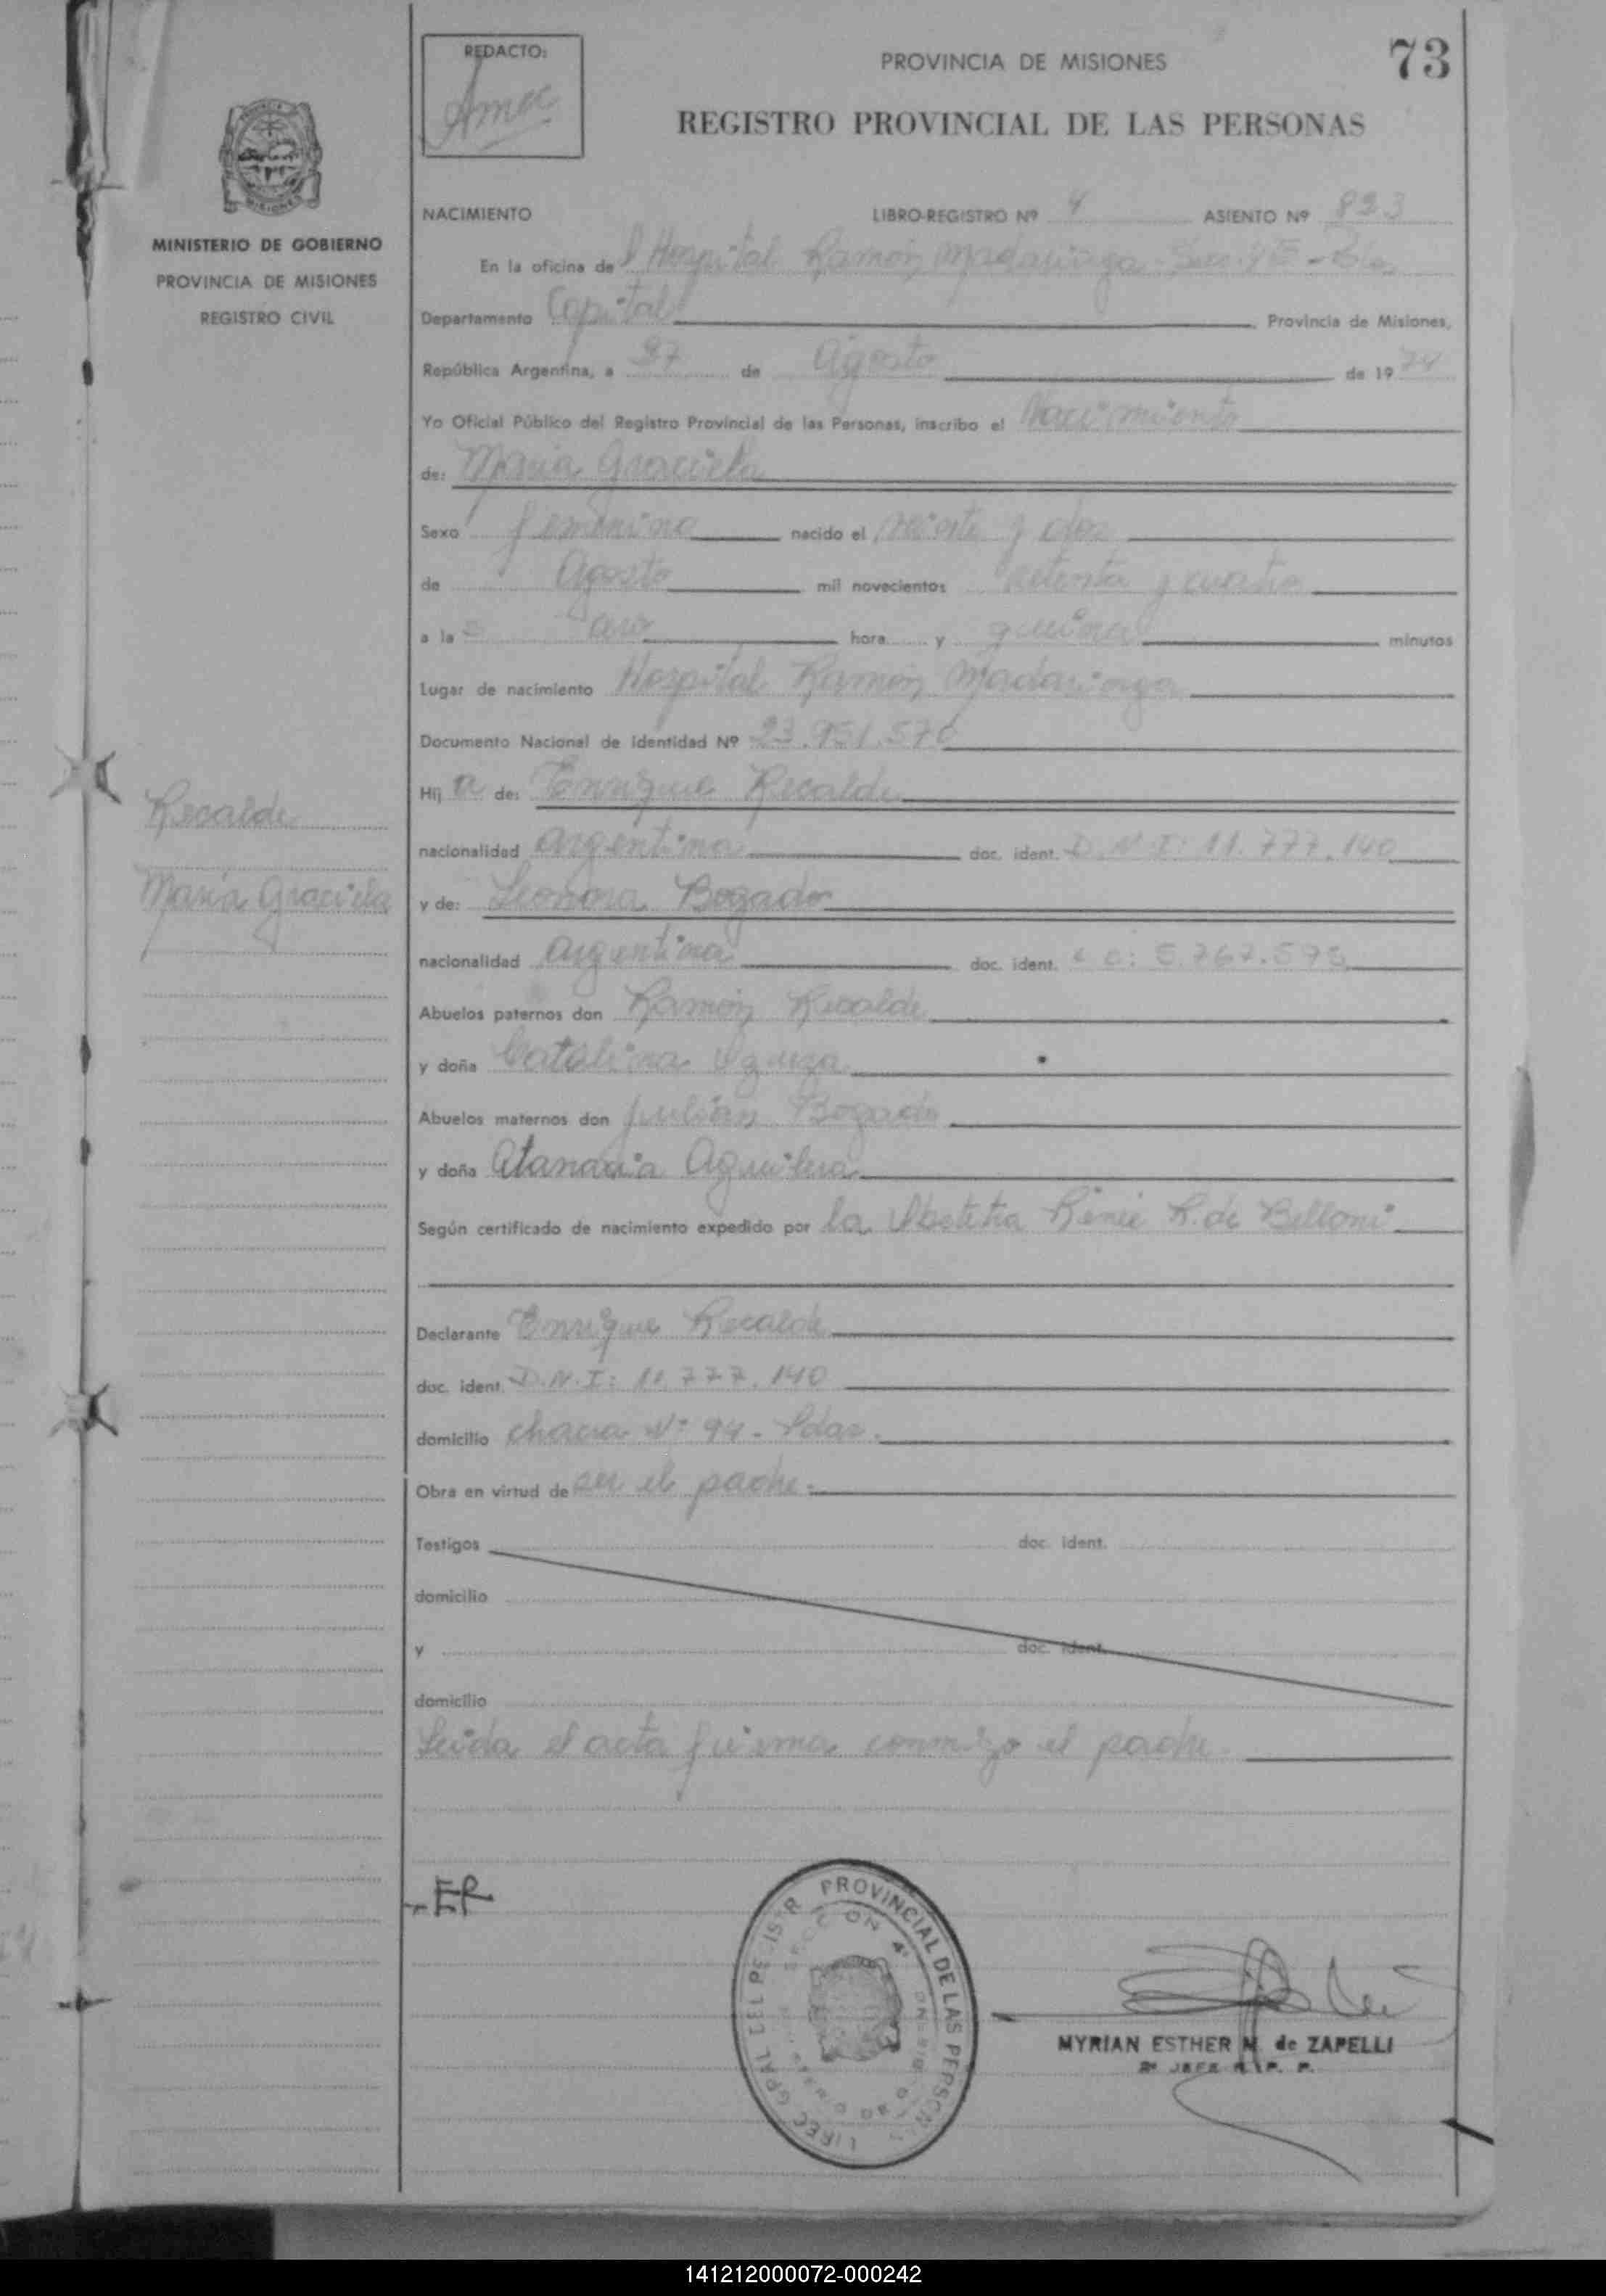 REDACTO:
PROVINCIA DE MISIONES
73
REGISTRO PROVINCIAL DE LAS PERSONAS
MISIONES
MINISTERIO DE GOBIERNO
PROVINCIA DE MISIONES
REGISTRO CIVIL
NACIMIENTO LIBRO-REGISTRO Nº 4 ASIENTO Nº 823
En la oficina de l Hospital Ramón Madariaga
Departamento Capital Provincia de Misiones,
República Argentina, a 27 de Agosto de 1974
Yo Oficial Público del Registro Provincial de las Personas, inscribo el Nacimiento
de: María Graciela
Sexo femenino nacido el veinte y dos
de Agosto mil novecientos setenta y cuatro
a la s hora y quince minutos
Lugar de nacimiento Hospital Ramón Madariaga
Documento Nacional de identidad Nº 23.951.576
Hij a de: Enrique Recalde
nacionalidad argentina doc. ident. D.N.I: 11.777.140
Recalde
María Graciela
y de: Leonora Bogado
nacionalidad argentina doc. ident. L C: 5.767.575
Abuelos paternos don Ramón Recalde
y doña Catalina
Abuelos maternos don Julián Bogado
y doña Atanacia Aguilera
Según certificado de nacimiento expedido por la Obstetra Renée R. de Belloni
Declarante Enrique Recalde
doc. ident. D.N.I: 11.777.140
domicilio chacra Nº 94 - Pdas.
Obra en virtud de ser el padre.
Testigos doc. ident.
domicilio
y doc. ident.
domicilio
Leida el acta firma conmigo el padre
ER
DIREC GRAL DEL REGISTR PROVINCIAL DE LAS PERSONAS
SECCION 4ª
MYRIAN ESTHER M. de ZAPELLI
2º JEFE R. P. P.
141212000072-000242